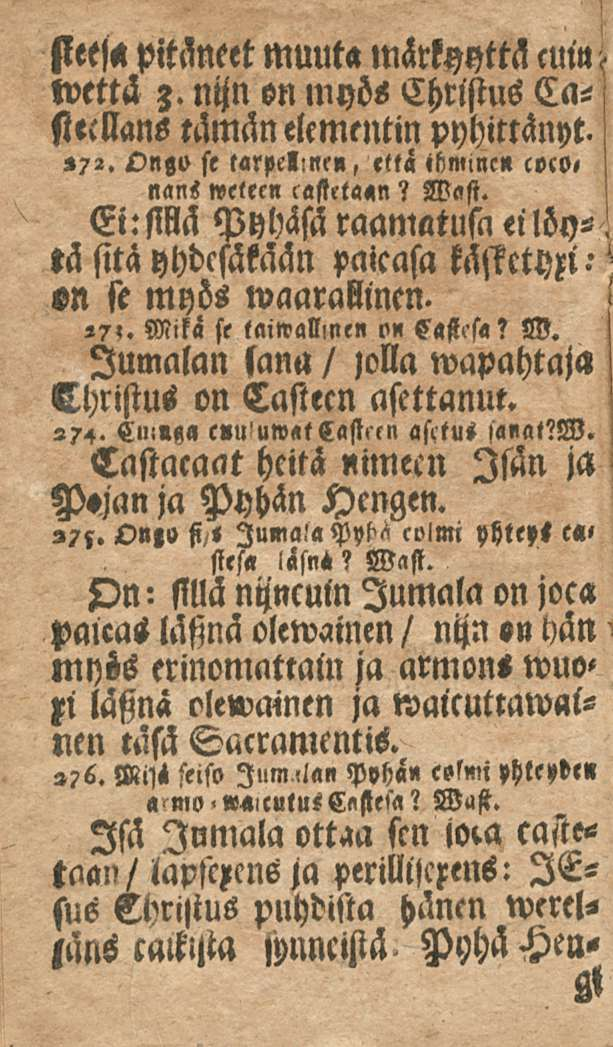 steesa pitäneet muuta märkyyttä cuin
wettä 3. nijn on myös Christus Ca⸗
steellans tämän elementin pyhittänyt.
272. Ongo se tarpellinen, että ihminen coco⸗
nans weteen castetaan? Wast.
Ei: sillä Pyhäsä raamatusa ei löy⸗
tä sitä yhdesäkään paicasa käsketyxi:
on se myös waarallinen.
273. Mikä se taiwallinen on Castesa? W.
Jumalan sana / jolla wapahtaja
Christus on Casteen asettanut.
274. Cuinga cuuluwat Casteen asetus sanat? W.
Castacaat heitä nimeen Isän ja
Pojan ja Pyhän Hengen.
275. Ongo sijs Jumala Pyhä colmi yhteys ca⸗
stesa läsnä? Wast.
On: sillä nijncuin Jumala on joca
paicas läßnä olewainen / nijn on hän
myös erinomattain ja armons wuo⸗
xi läßnä olewainen ja waicuttawai⸗
nen täsä Sacramentis.
276. Misä seiso Jumalan Pyhän colmi yhteyden
armo⸗waicutus Castesa? Wast.
Isä Jumala ottaa sen joca caste⸗
taan / lapsexens ja perillisexens: JE⸗
sus Christus puhdista hänen werel⸗
läns caikista synneistä. Pyhä Hen⸗
gi